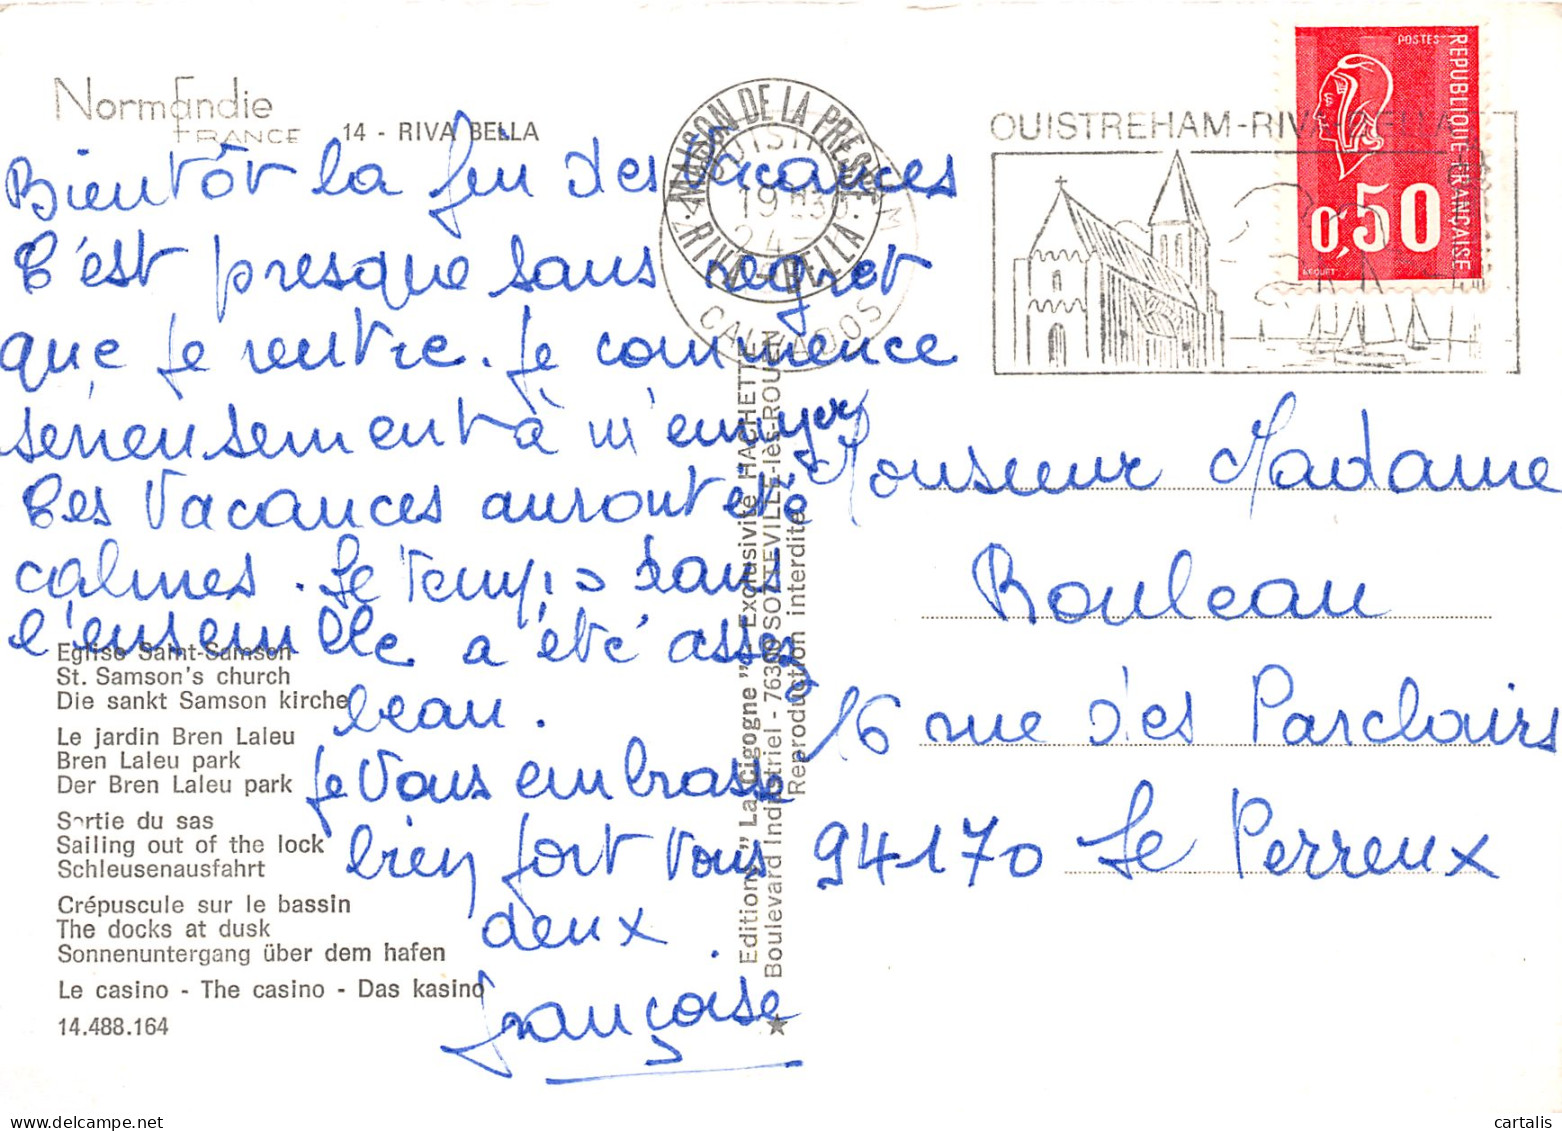 Normandie
FRANCE
14 - RIVA BELLA
Bientôt la fin des Vacances
C'est presque sans regret
que je rentre. Je commence
sérieusement à m'ennuyer
Ces Vacances auront été
calmes. Le Temps dans
l'ensemble a été assez
beau.
Je Vous embrasse
bien fort Vous
deux.
Françoise
Eglise Saint-Samson
St. Samson's church
Die sankt Samson kirche
Le jardin Bren Laleu
Bren Laleu park
Der Bren Laleu park
Sortie du sas
Sailing out of the lock
Schleusenausfahrt
Crépuscule sur le bassin
The docks at dusk
Sonnenuntergang über dem hafen
Le casino - The casino - Das kasino
14.488.164
Editions "La Cigogne" - Exclusivité HACHETTE
Boulevard Industriel - 76300 SOTTEVILLE-lès-ROUEN
Reproduction interdite
MAISON DE LA PRESSE
RIVA-BELLA
CALVADOS
OUISTREHAM-RIVA-BELLA
POSTES
REPUBLIQUE FRANÇAISE
0,50
Monsieur Madame
Rouleau
16 rue des Parclairs
94170 Le Perreux
cartalis